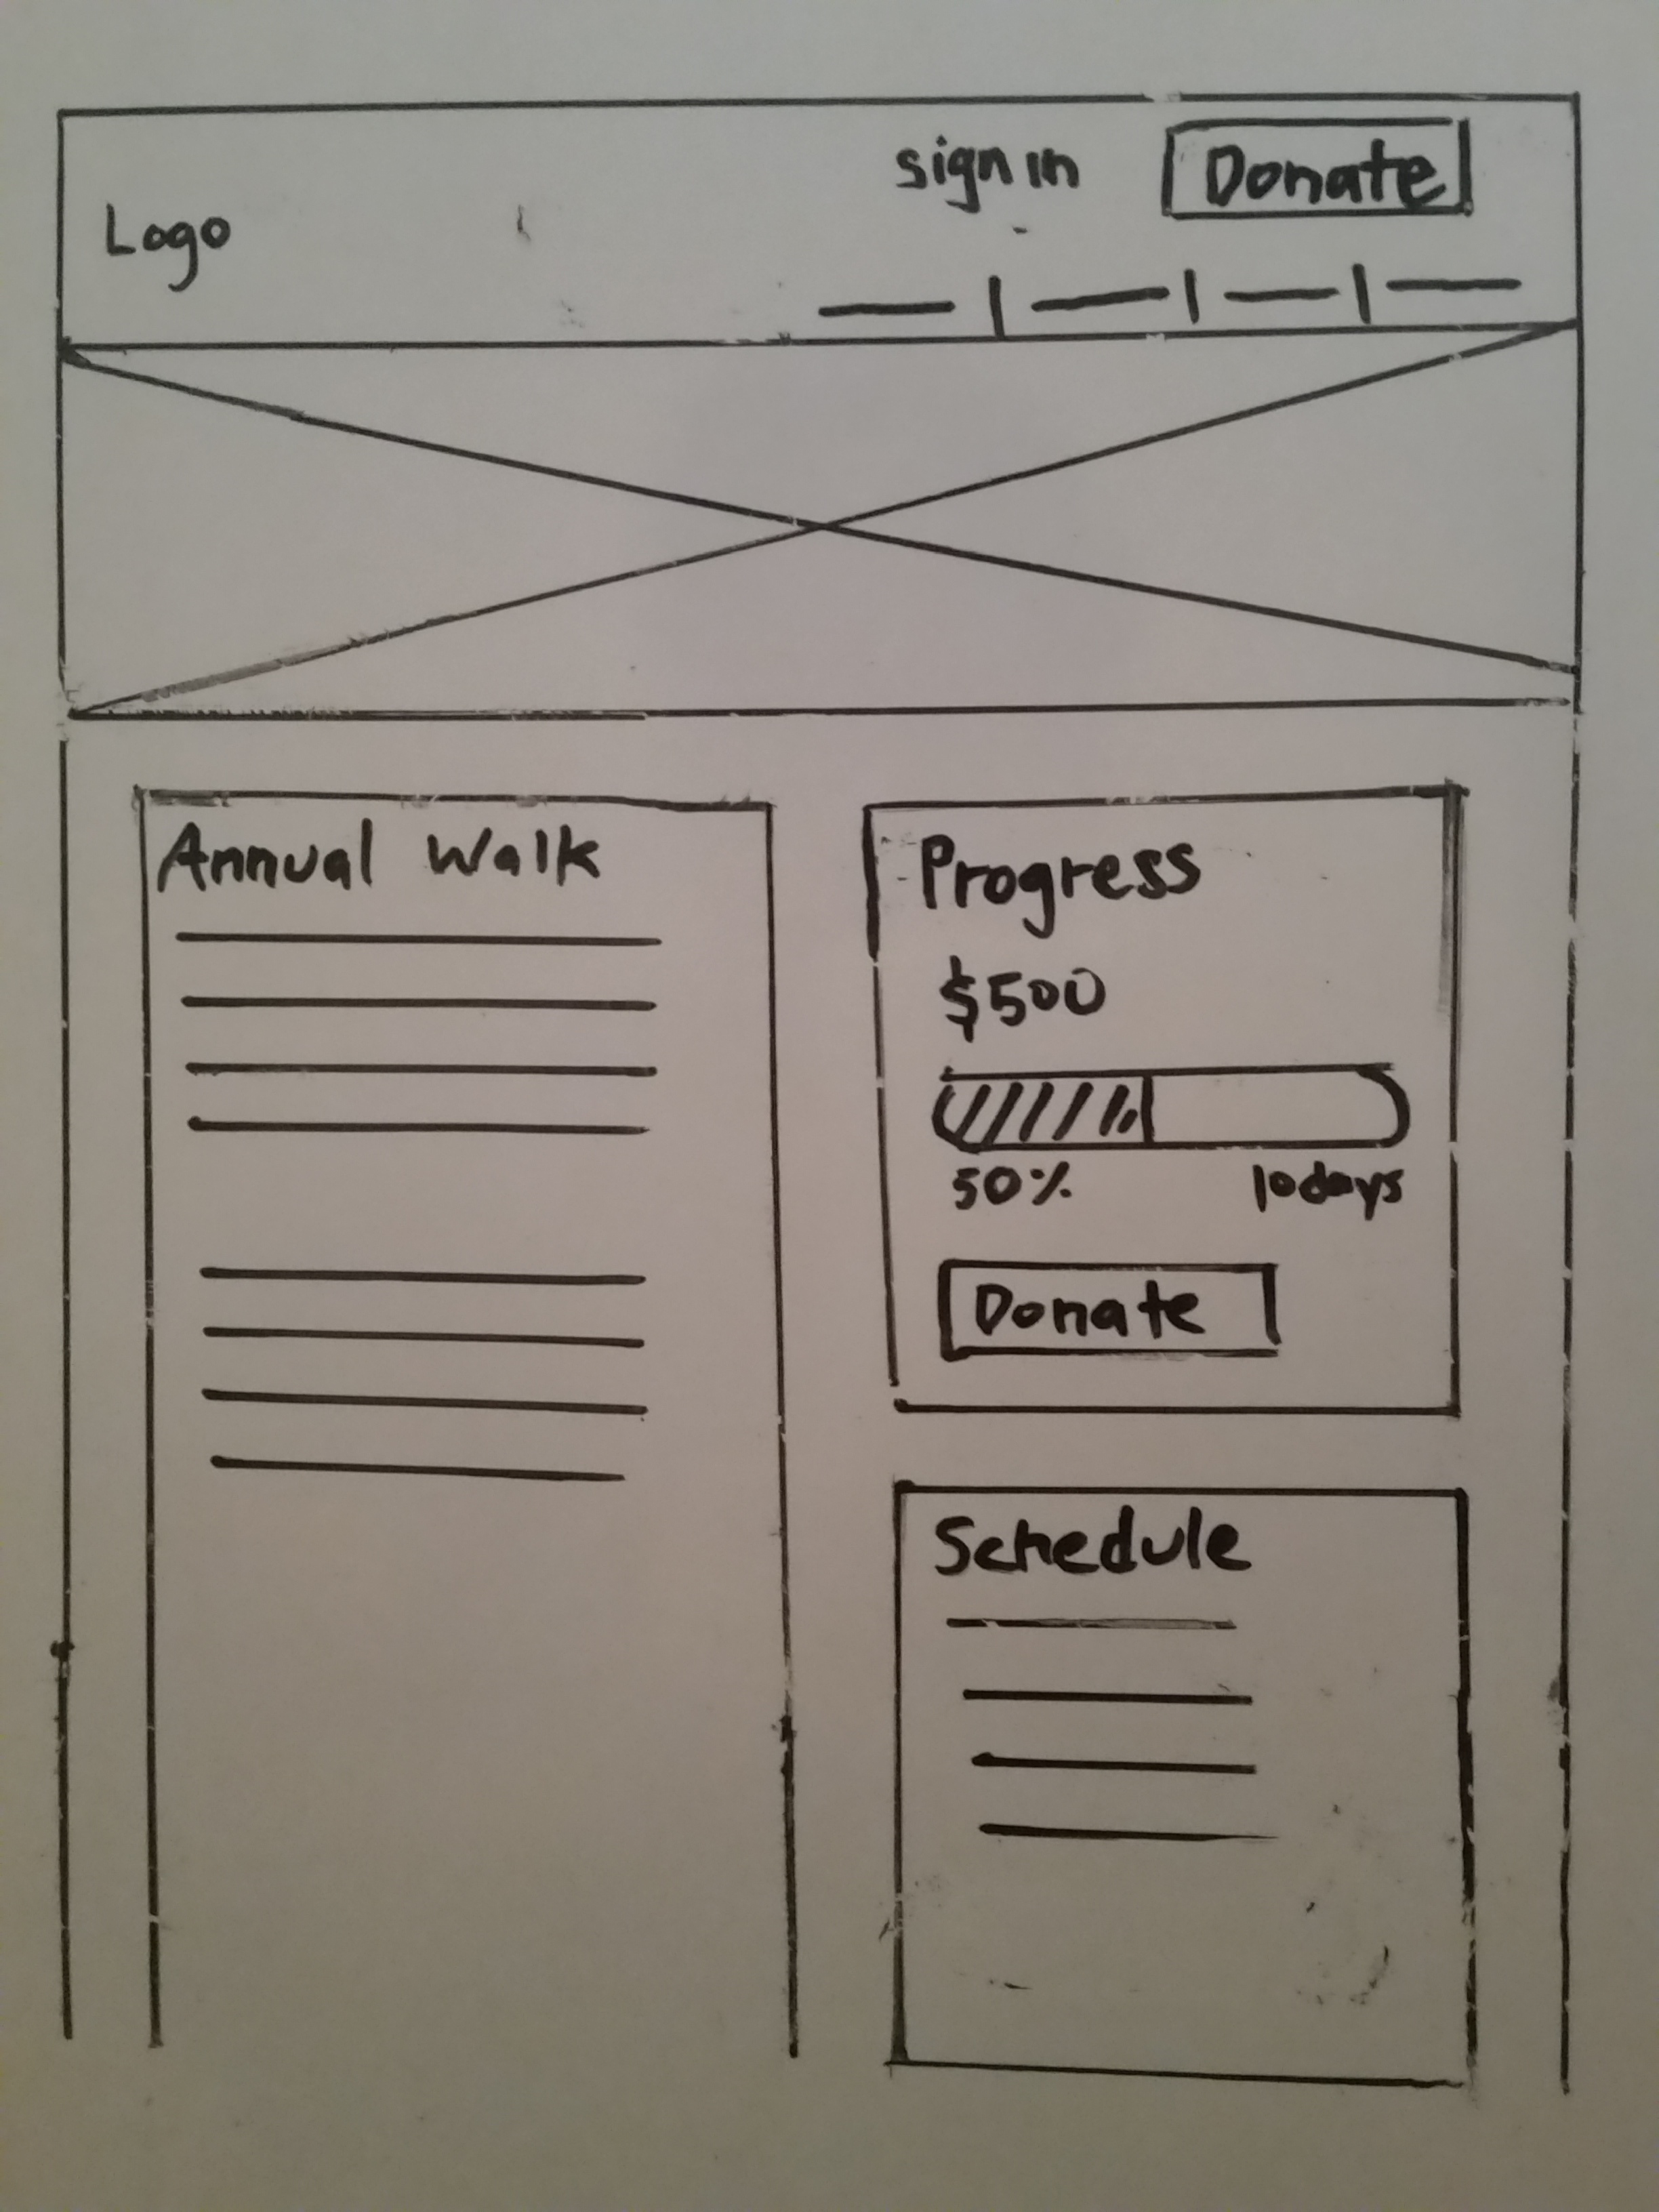 sign in Donate
Logo
Annual Walk
Progress
$500
50% 10days
Donate
Schedule